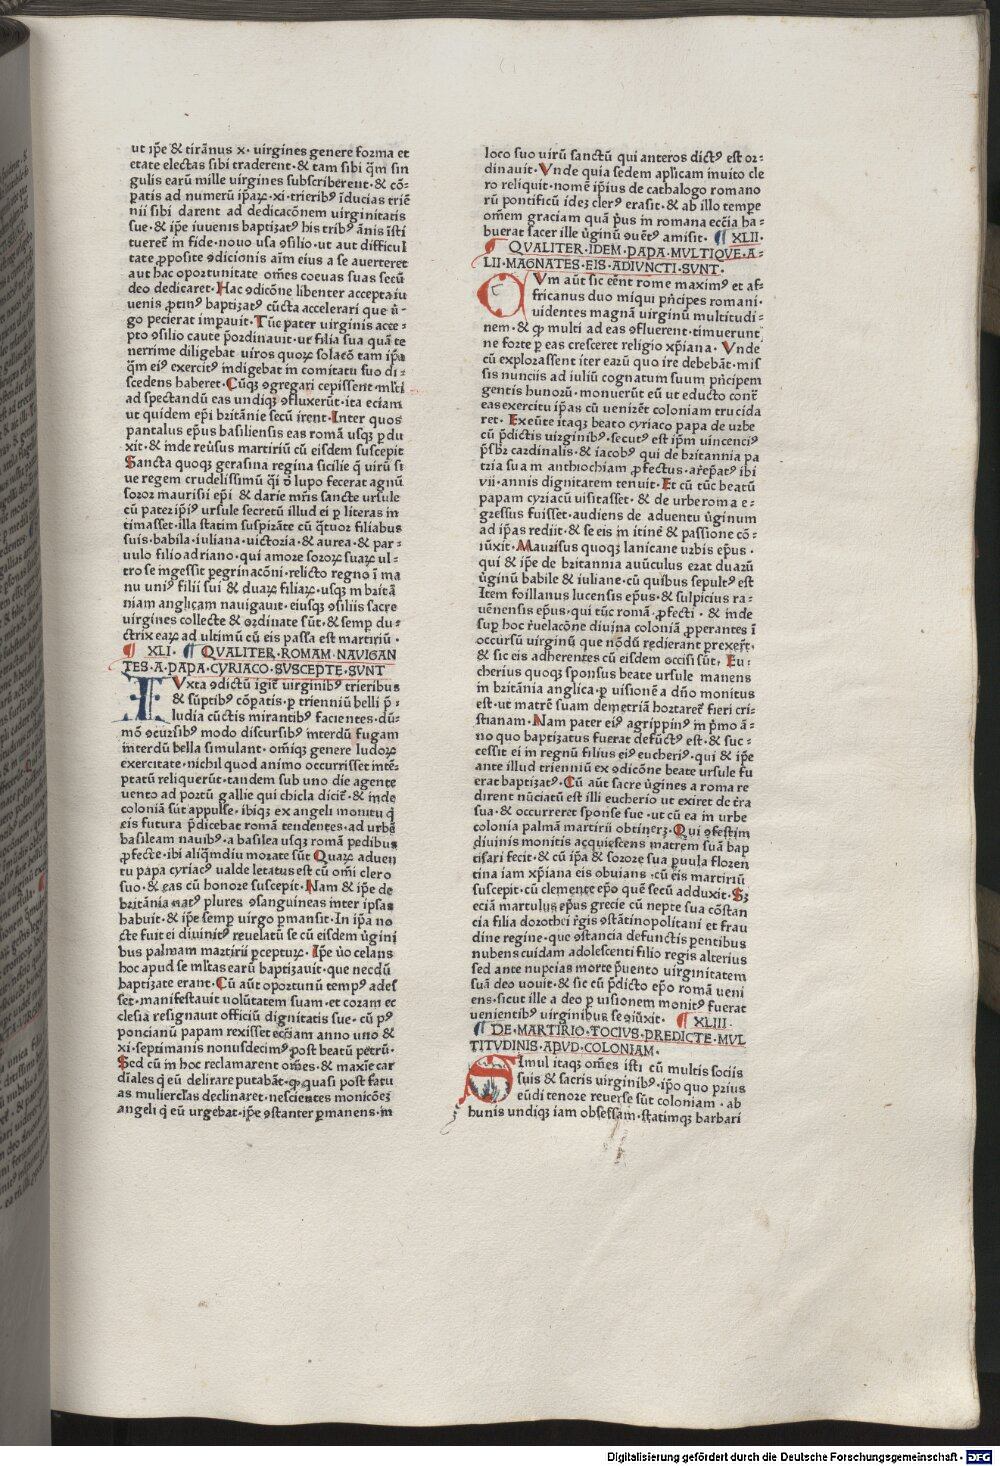 ut ip̃e & tirãnus x· uirgines genere forma et
etate electas sibi traderent·& tam sibi q̃m sin
gulis earũ mille uirgines subscriberent·& cõ⸗
patis ad numerũ ip̃aꝝ·xi·trieribꝰ ĩducias triẽ
nii sibi darent ad dedicacõnem uirginitatis
sue·& ip̃e iuuenis baptizatꝰ his tribꝰ ãnis ĩsti
tueret̃ in fide·nouo usa ꝯsilio·ut aut difficul
tate ꝓposite ꝯdicionis aĩm eius a se auerteret
aut hac oportunitate om̃es coeuas suas secũ
deo dedicaret·Hac ꝯdicõne libenter accepta iu
uenis ꝓtinꝰ baptizatꝰ cũcta accelerari que ũ⸗
go pecierat imꝑauit·Tũc pater uirginis acce⸗
pto ꝯsilio caute p̃ordinauit·ut filia sua quã te
nerrime diligebat uiros quoꝝ solacõ tam ip̃a
q̃m eiꝰ exercitꝰ indigebat in comitatu suo di⸗
scedens haberet·Cũqꝫ ꝯgregari cepissent·ml̃ti
ad spectandũ eas undiqꝫ ꝯfluxerũt·ita eciam
ut quidem ep̃i britãnie secũ irent·Inter quos
pantalus ep̃us basiliensis eas romã usqꝫ ꝑdu
xit·& inde reũsus martiriũ cũ eisdem suscepit
Sancta quoqꝫ gerasina regina sicilie q̃ uirũ si
ue regem crudelissimũ q̃i ð lupo fecerat agnũ
soror maurisii ep̃i & darie mr̃is sancte ursule
cũ pater ip̃iꝰ ursule secretũ illud ei ꝑ literas in
timasset·illa statim suspirãte cũ q̃tuor filiabus
suis·babila·iuliana·uictoria·& aurea·& par⸗
uulo filio adriano·qui amore soroꝝ suaꝝ ul⸗
tro se ingessit ꝑegrinacõni·relicto regno ĩ ma
nu uniꝰ filii sui & duaꝝ filiaꝝ·usqꝫ in britã
niam anglicam nauigauit·eiusqꝫ ꝯsiliis sacre
uirgines collecte & ordinate sũt·& semꝑ du⸗
ctrix eaꝝ ad ultimũ cũ eis passa est martiriũ·
XLI· QVALITER·ROMAM·NAVIGAN
TES·A·PAPA·CYRIACO·SVSCEPTE·SVNT
IVxta ꝯdictũ igit̃ uirginibꝰ trieribus
& sũptibꝰ cõpatis·ꝑ trienniũ belli p̃⸗
ludia cũctis mirantibꝰ facientes·dũ⸗
mõ ꝯcursibꝰ modo discursibꝰ interdũ fugam
interdũ bella simulant·om̃iqꝫ genere ludoꝝ
exercitate·nichil quod animo occurrisset intẽ⸗
ptatũ reliquerũt·tandem sub uno die agente
uento ad portũ gallie qui chicla dicit̃·& inde
coloniã sũt appulse·ibiqꝫ ex angeli monitu q̃
eis futura p̃dicebat romã tendentes·ad urbẽ
basileam nauibꝰ·a basilea usqꝫ romã pedibus
ꝓfecte·ibi aliq̃mdiu morate sũt Quaꝝ aduen
tu papa cyriacꝰ ualde letatus est cũ om̃i clero
suo·& eas cũ honore suscepit·Nam & ip̃e de
britãnia natꝰ plures ꝯsanguineas inter ipsas
habuit·& ip̃e semꝑ uirgo ꝑmansit·In ip̃a no
cte fuit ei diuinitꝰ reuelatũ se cũ eisdem ũgini
bus palmam martirii ꝑcepturꝫ·Ip̃e ũo celans
hoc apud se ml̃tas earũ baptizauit·que necdũ
baptizate erant·Cũ aũt oportunũ tempꝰ ades
set·manifestauit uolũtatem suam·et coram ec
clesia resignauit officiũ dignitatis sue·cũ pꝰ
poncianũ papam rexisset ecc̃iam anno uno &
xi·septimanis nonusdecimꝰ·post beatũ petrũ·
Sed cũ in hoc reclamarent om̃es·& maxie car
dĩales q̃ eũ delirare putabãt·ꝙ quasi post fatu
as mulierc̃las declinaret·nescientes monicões
angeli q̃ eũ urgebat·ip̃e ꝯstanter ꝑmanens·in
loco suo uirũ sanctũ qui anteros dictꝰ est or⸗
dinauit·Vnde quia sedem apl̃icam inuito cle
ro reliquit·nomẽ ip̃ius de cathalogo romano
rũ pontificũ ideꝫ clerꝰ erasit·& ab illo temꝑe
om̃em graciam quã p̃us in romana ecc̃ia ha⸗
buerat sacer ille ũginũ ꝯuẽtꝰ amisit· XLII·
QVALITER·IDEM·PAPA·MVLTIQVE·A⸗
LII·MAGNATES·EIS·ADIVNCTI·SVNT·
CVm aũt sic eẽnt rome maximꝰ et af⸗
fricanus duo miqui pñcipes romani·
uidentes magnã uirginũ multitudi⸗
nem·& ꝙ multi ad eas ꝯfluerent·timuerunt
ne forte ꝑ eas cresceret religio xp̃iana·Vnde
cũ explorassent iter earũ quo ire debebãt·mis
sis nunciis ad iuliũ cognatum suum pñcipem
gentis hunorũ·monuerũt eũ ut educto contᷓ
eas exercitu ip̃as cũ uenirẽt coloniam trucida
ret·Exeũte itaqꝫ beato cyriaco papa de urbe
cũ p̃dictis uirginibꝰ·secutꝰ est ip̃m uincenciꝰ
p̃sbr̃ cardinalis·& iacobꝰ qui de britannia pa
tria sua m anthiochiam ꝓfectus·arep̃atꝰ ibi
vii·annis dignitatem tenuit·Et cũ tũc beatũ
papam cyriacũ uisitasset·& de urbe roma e⸗
gressus fuisset·audiens de aduentu ũginum
ad ip̃as rediit·& se eis in itinẽ & passione cõ⸗
iũxit·Maurisus quoqꝫ lanicane urbis ep̃us·
qui & ip̃e de britannia auũculus erat duarũ
ũginũ babile & iuliane·cũ quibus sepultꝰ est
Item foillanus lucensis ep̃us·& sulpicius ra⸗
uẽnensis ep̃us·qui tũc romã ꝓfecti·& inde
suꝑ hoc r̃uelacõne diuina coloniã ꝓperantes ĩ
occursũ uirginũ que nõdũ redierant ꝑrexer̃t·
& sic eis adherentes cũ eisdem occisi sũt· Eu⸗
cherius quoqꝫ sponsus beate ursule manens
in britãnia anglica·ꝑ uisionẽ a dño monitus
est·ut matrẽ suam demetriã hortaret̃ fieri cri⸗
stianam·Nam pater eiꝰ agrippinꝰ in p̃mo ã⸗
no quo baptizatus fuerat defũctꝰ est·& suc⸗
cessit ei in regnũ filius eiꝰ eucheriꝰ·qui & ip̃e
ante illud trienniũ ex ꝯdicõne beate ursule fu
erat baptizatꝰ·Cũ aũt sacre ũgines a roma re
dirent nũciatũ est illi eucherio ut exiret de t̃ra
sua·& occurreret sponse sue·ut cũ ea in urbe
colonia palmã martirii obtinerꝫ·Qui ꝯfestim
diuinis monitis acquiescens matrem suã bap
tisari fecit·& cũ ip̃a & sorore sua ꝑuula floren
tina iam xp̃iana eis obuians·cũ eis martiriũ
suscepit·cũ clemente ep̃o quẽ secũ adduxit·Sꝫ
eciã martulus ep̃us grecie cũ nepte sua cõstan
cia filia dorothei r̃gis ꝯstãtinopolitani et frau
dine regine·que ꝯstancia defunctis pentibus
nubens cuidam adolescenti filio regis alterius
sed ante nupcias morte p̃uento uirginitatem
suã deo uouit·& sic cũ p̃dicto ep̃o romã ueni
ens·sicut ille a deo ꝑ uisionem monitꝰ fuerat
uenientibus uirginibus se ꝯiũxit· XLIII·
DE·MARTIRIO·TOCIVS·PREDICTE·MVL
TITVDINIS·APVD·COLONIAM·
SImul itaqꝫ om̃es isti cũ multis sociis
suis & sacris uirginibꝰ·ip̃o quo prius
eũdi tenore reuerse sũt coloniam·ab
hunis undiqꝫ iam obsessam·statimqꝫ barbari
Digitalisierung gefördert durch die Deutsche Forschungsgemeinschaft - DFG